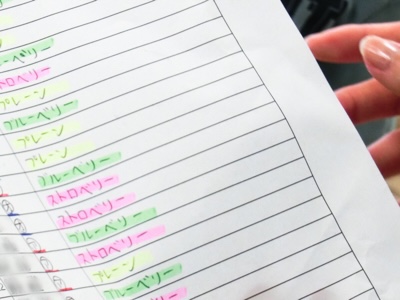 ブルーベリー
ストロベリー
プレーン
ブルーベリー
プレーン
プレーン
ブルーベリー
ストロベリー
ストロベリー
ブルーベリー
ストロベリー
プレーン
ブルーベリー